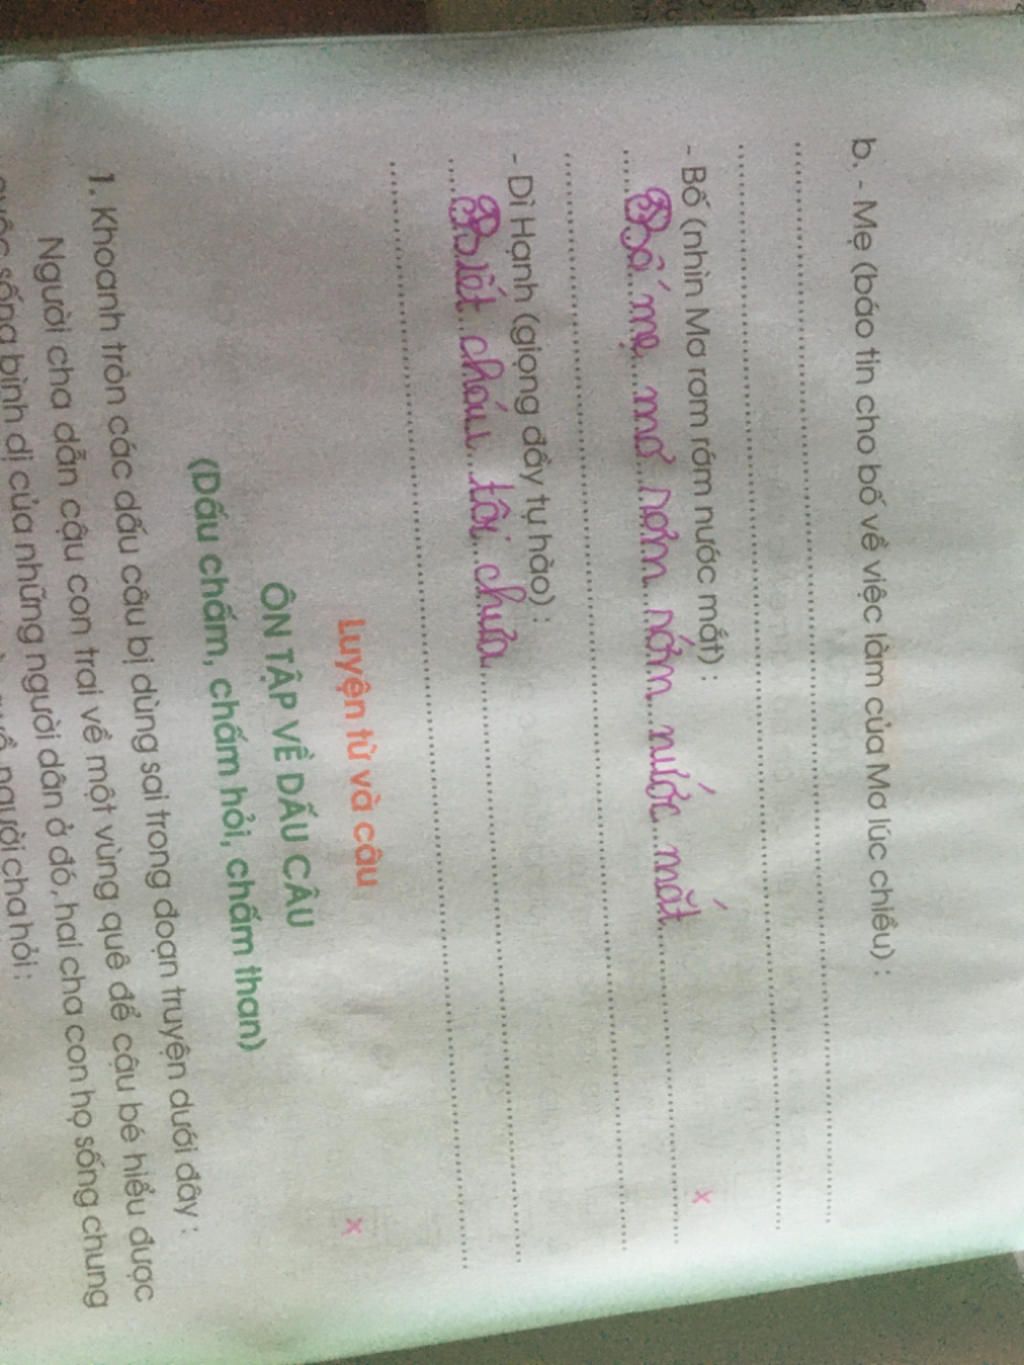 b. - Mẹ (báo tin cho bố về việc làm của Mơ lúc chiều) :
- Bố (nhìn Mơ rơm rớm nước mắt) :
Bố mẹ mơ rơm rớm nước mắt
x
- Dì Hạnh (giọng đầy tự hào) :
Biết cháu tôi chưa
Luyện từ và câu
x
ÔN TẬP VỀ DẤU CÂU
(Dấu chấm, chấm hỏi, chấm than)
1. Khoanh tròn các dấu câu bị dùng sai trong đoạn truyện dưới đây :
Người cha dẫn cậu con trai về một vùng quê để cậu bé hiểu được
cuộc sống bình dị của những người dân ở đó, hai cha con họ sống chung
người cha hỏi :